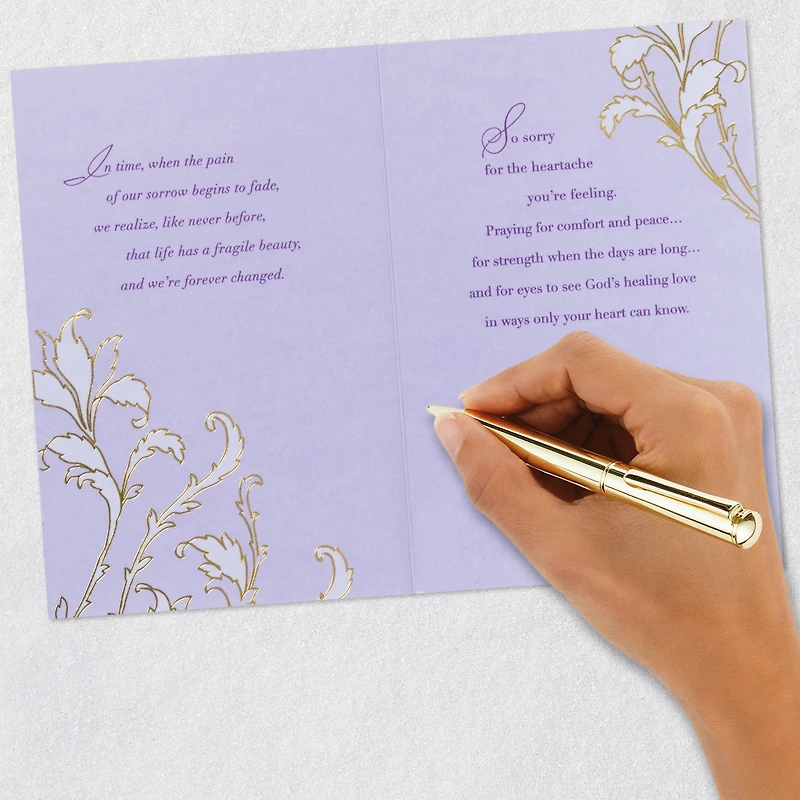 In time, when the pain
of our sorrow begins to fade,
we realize, like never before,
that life has a fragile beauty,
and we're forever changed.
So sorry
for the heartache
you're feeling.
Praying for comfort and peace...
for strength when the days are long...
and for eyes to see God's healing love
in ways only your heart can know.